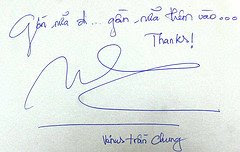 Gần nữa đi... gần nữa thêm vào...
Thanks!
Venus trần Chung